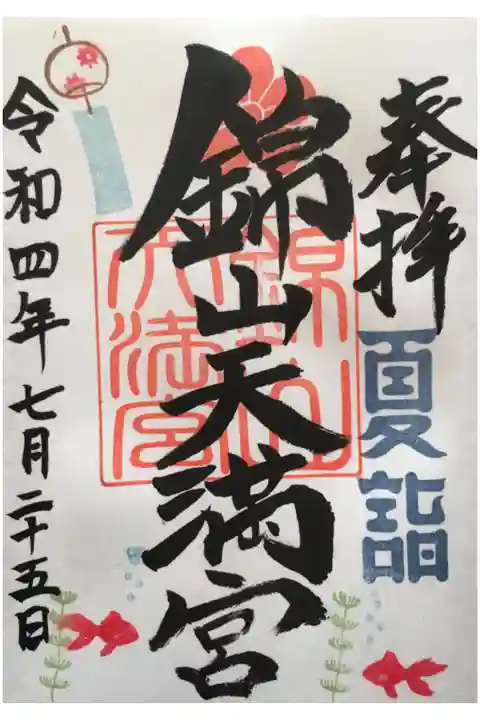 奉拝
夏詣
錦山天満宮
錦山天満宮
令和四年七月二十五日